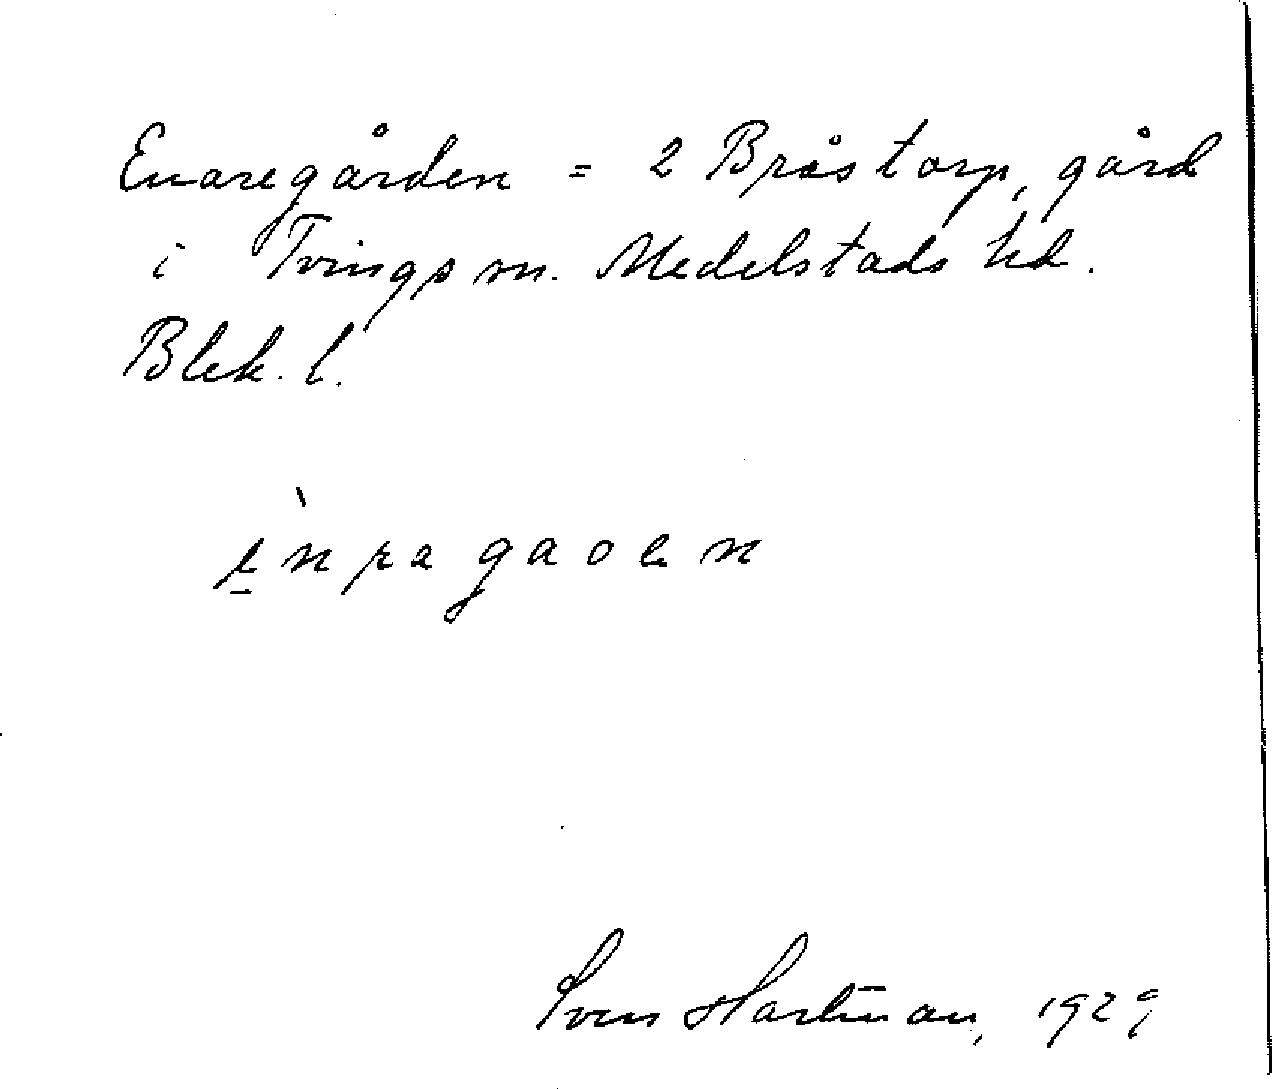 Enaregården = 2 Bråstorp, gård
i Tvings sn. Medelstads hd.
Blek. l.
Sven Hartman, 1929